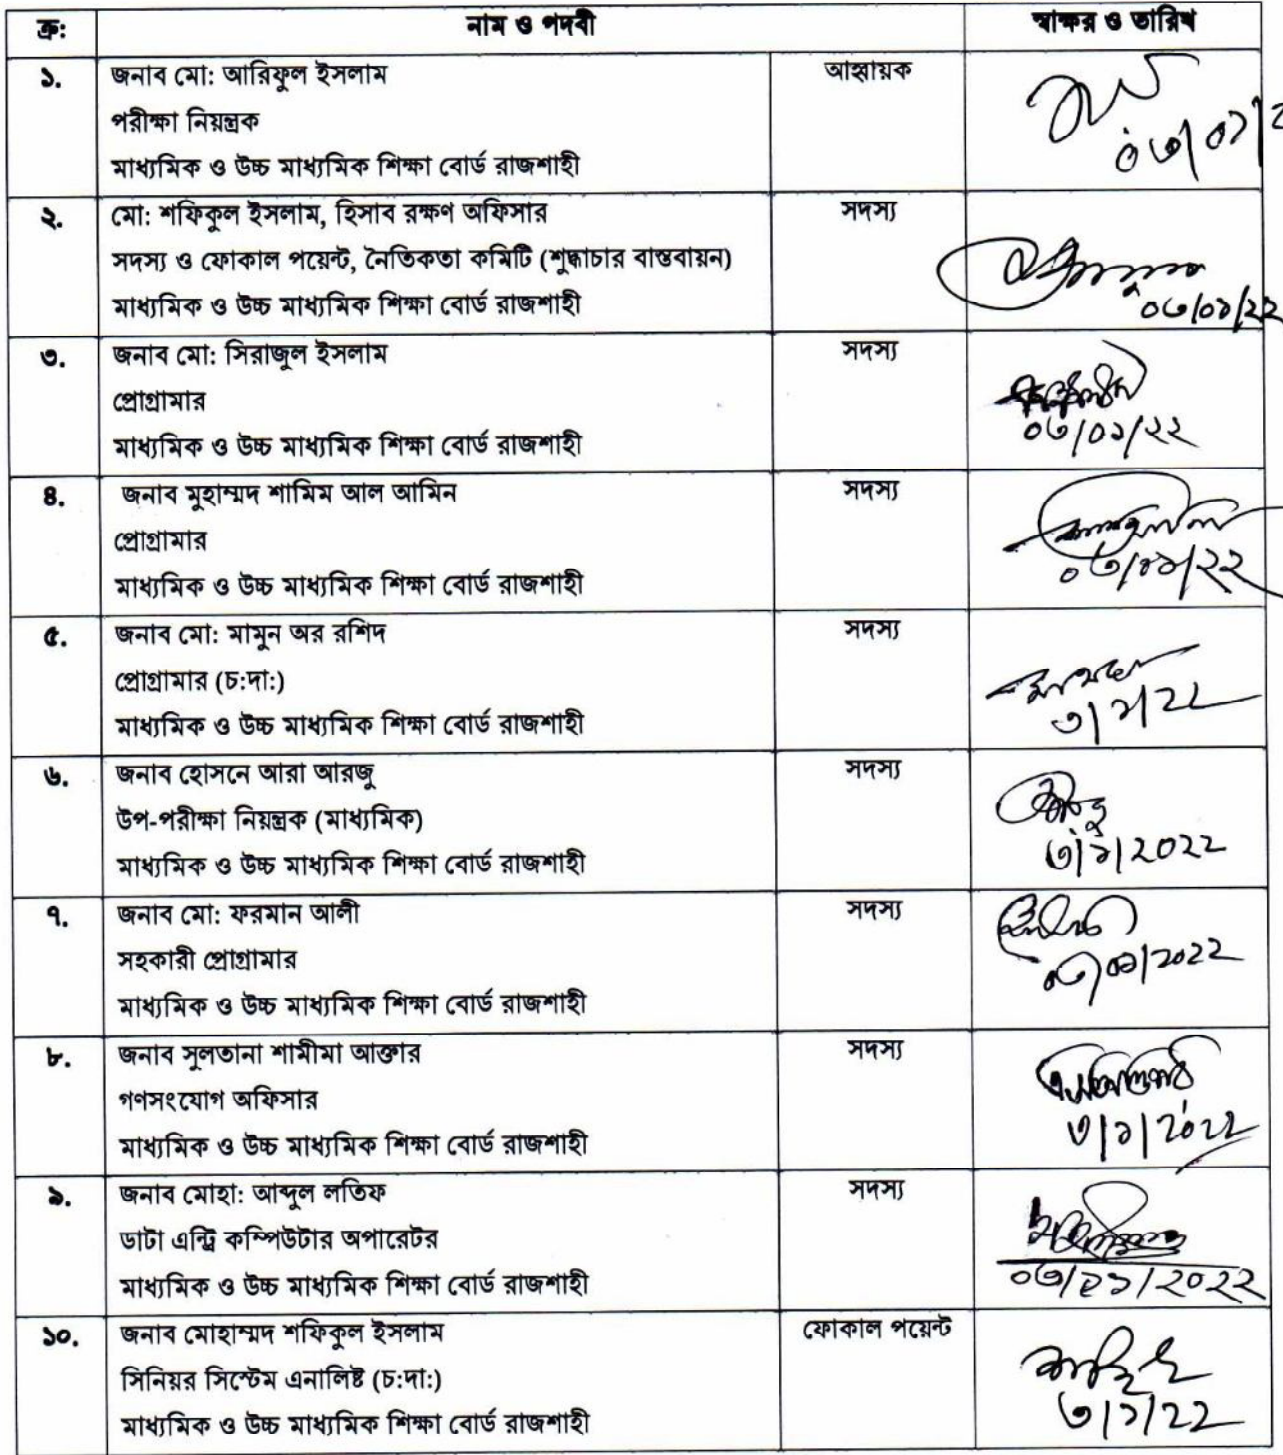 ক্র: নাম ও পদবী স্বাক্ষর ও তারিখ
১. জনাব মো: আরিফুল ইসলাম আহ্বায়ক
পরীক্ষা নিয়ন্ত্রক
মাধ্যমিক ও উচ্চ মাধ্যমিক শিক্ষা বোর্ড রাজশাহী
২. মো: শফিকুল ইসলাম, হিসাব রক্ষণ অফিসার সদস্য
সদস্য ও ফোকাল পয়েন্ট, নৈতিকতা কমিটি (শুদ্ধাচার বাস্তবায়ন)
মাধ্যমিক ও উচ্চ মাধ্যমিক শিক্ষা বোর্ড রাজশাহী
০৩/০১/২২
৩. জনাব মো: সিরাজুল ইসলাম সদস্য
প্রোগ্রামার
মাধ্যমিক ও উচ্চ মাধ্যমিক শিক্ষা বোর্ড রাজশাহী
০৩/০১/২২
৪. জনাব মুহাম্মদ শামিম আল আমিন সদস্য
প্রোগ্রামার
মাধ্যমিক ও উচ্চ মাধ্যমিক শিক্ষা বোর্ড রাজশাহী
০৩/০১/২২
৫. জনাব মো: মামুন অর রশিদ সদস্য
প্রোগ্রামার (চ:দা:)
মাধ্যমিক ও উচ্চ মাধ্যমিক শিক্ষা বোর্ড রাজশাহী
৩/১/22
৬. জনাব হোসনে আরা আরজু সদস্য
উপ-পরীক্ষা নিয়ন্ত্রক (মাধ্যমিক)
মাধ্যমিক ও উচ্চ মাধ্যমিক শিক্ষা বোর্ড রাজশাহী
৩/১/2022
৭. জনাব মো: ফরমান আলী সদস্য
সহকারী প্রোগ্রামার
মাধ্যমিক ও উচ্চ মাধ্যমিক শিক্ষা বোর্ড রাজশাহী
০৩/০১/2022
৮. জনাব সুলতানা শামীমা আক্তার সদস্য
গণসংযোগ অফিসার
মাধ্যমিক ও উচ্চ মাধ্যমিক শিক্ষা বোর্ড রাজশাহী
৩/১/2022
৯. জনাব মোহা: আব্দুল লতিফ সদস্য
ডাটা এন্ট্রি কম্পিউটার অপারেটর
মাধ্যমিক ও উচ্চ মাধ্যমিক শিক্ষা বোর্ড রাজশাহী
০৩/০১/২০২২
১০. জনাব মোহাম্মদ শফিকুল ইসলাম ফোকাল পয়েন্ট
সিনিয়র সিস্টেম এনালিষ্ট (চ:দা:)
মাধ্যমিক ও উচ্চ মাধ্যমিক শিক্ষা বোর্ড রাজশাহী
৩/১/22